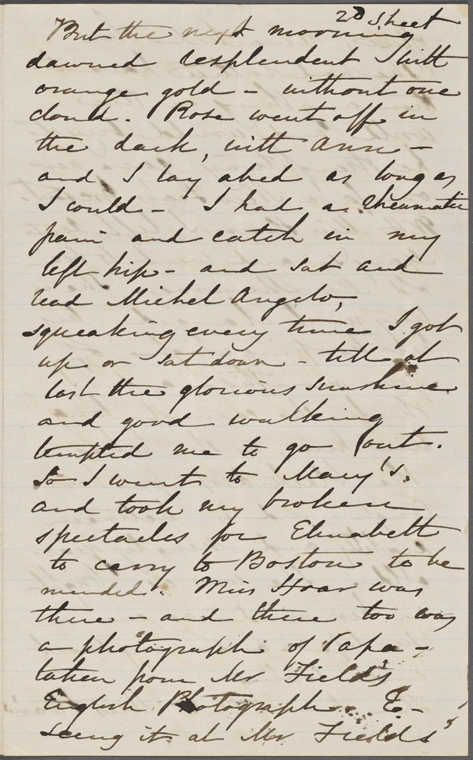 2d Sheet
But the next morning
dawned resplendent with
orange gold - without one
cloud. Rose went off in
the dark, with Ann -
and I lay abed as long as
I could - I had a rheumatic
pain and catch in my
left hip - and sat and
read Michel Angelo,
squeaking every time I got
up or sat down - till at
last the glorious sunshine
and good walking
tempted me to go out.
So I went to Mary's.
and took my broken
spectacles for Elizabeth
to carry to Boston to be
mended. Miss Hoar was
there - and there too was
a photograph of Papa -
taken from Mr Field's
English Photograph. E-
seeing it at Mr Fields'